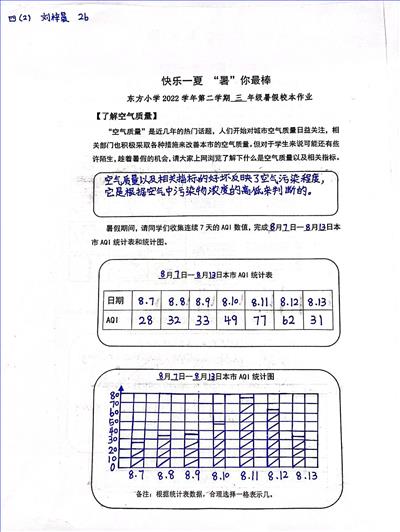 四(2) 刘梓晨 26
快乐一夏 “暑”你最棒
东方小学2022学年第二学期 三 年级暑假校本作业
【了解空气质量】
“空气质量”是近几年的热门话题，人们开始对城市空气质量日益关注，相
关部门也积极采取各种措施来改善本市的空气质量。但对于学生来说可能还有些
许陌生，趁着暑假的机会，请大家上网浏览了解下什么是空气质量以及相关指标。
空气质量以及相关指标的好坏反映了空气污染程度，
它是根据空气中污染物浓度的高低来判断的。
暑假期间，请同学们收集连续7天的AQI数值，完成8月7日—8月13日本
市AQI统计表和统计图。
8月7日—8月13日本市AQI统计表
日期 8.7 8.8 8.9 8.10 8.11 8.12 8.13
AQI 28 32 33 49 77 62 31
8月7日—8月13日本市AQI统计图
80
70
60
50
40
30
20
10
0
8.7 8.8 8.9 8.10 8.11 8.12 8.13
备注：根据统计表数据，合理选择一格表示几。